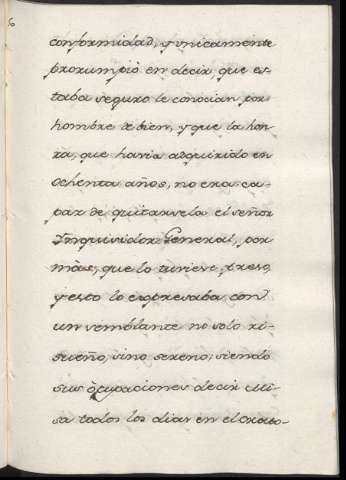 conformidad, y unicamente
prorumpiò en decir, que es-
taba seguro le conocian por
hombre de bien, y que la hon-
ra, que havia adquirido en
ochenta años, no era ca-
paz de quitarsela el señor
Inquisidor General, por
màs, que lo tuviese preso,
y esto lo expresaba con
un semblante no solo ri-
sueño, sino sereno; siendo
sus òcupaciones decir Mi-
sa todos los dias en el Orato-